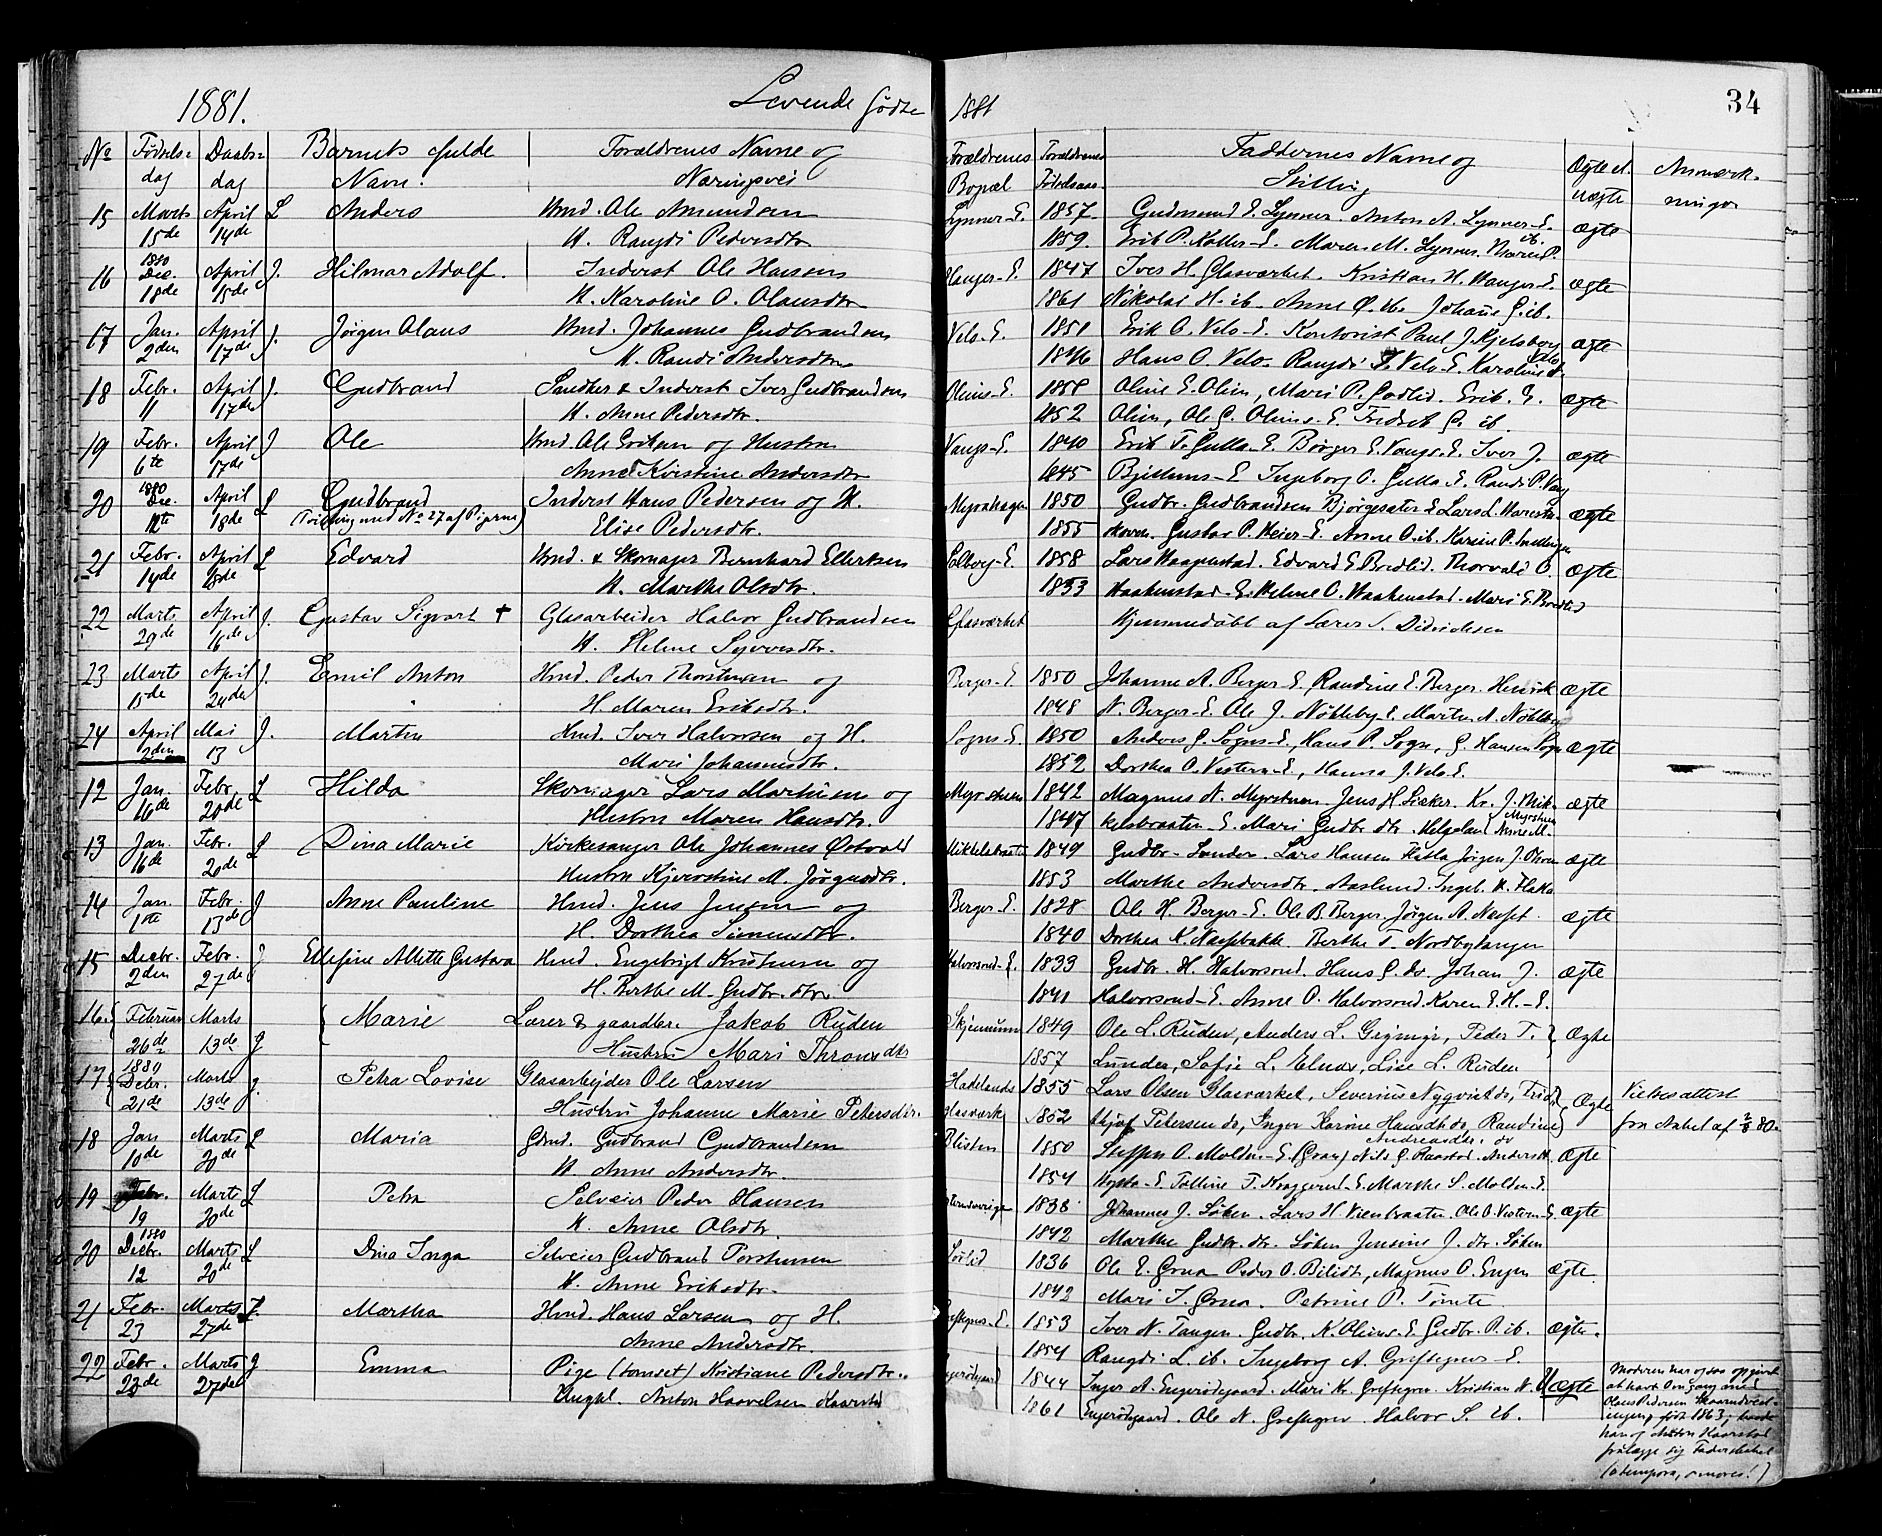 1881.
Levende fødte
No
Fødsels=
dag
Daabs=
dag
Barnets fulde
Navn.
Forældrenes Navne og
Næringsvei
15 Marts April Anders Gmd. Ole Amundsen
15de 14de H. Rangdi Pedersdtr
1880
16 Dec. April J. Hilmar Adolf. Inderst Ole Hansen
18de 15de H. Karoline O. Olausdtr
17 Jan. April J. Jørgen Olaus Hmd. Johannes Gudbrandsen
2den 17de H. Randi Andersdtr
18 Febr. April J. Gudbrand Snedker & Inderst Iver Gudbrandsen
11 17de H. Anne Pedersdtr.
19 Febr. April J Ole Hmd. Ole Eriksen og Hustru
6te 17de Anne Kirstine Andersdtr
1880
20 Dec. April L Gudbrand Inderst Hans Pedersen og H.
18de (Tvilling med No 27 af Pigerne) Elise Pedersdtr.
21 Febr. April L Edvard Hmd. & Skomager Bernhard Ellertsen
14de 18de H. Marthe Olsdtr.
22 Marts April J. Gustav Sigvart † Glasarbeider Halvor Gudbrandsen
29de 16de H. Helene Syversdtr.
23 Marts April J. Emil Anton Hmd. Peder Thorstensen og
15de 24de H. Maren Eriksdtr.
24 April Mai J. Martin Hmd. Iver Halvorsen og H.
2den 13 Mari Johannesdtr.
12 Jan. Febr. L Hilda Skomager Lars Martinsen og
16de 20de Hustru Maren Hansdtr.
13 Jan. Febr. L Dina Marie Kirkesanger Ole Johannes Østvold
16de 20de Hustru Kjerstine M. Jørgensdtr.
14 Jan. Febr. J Anne Pauline Hmd. Jens Jensen og
1ste 13de H. Dorthea Simensdtr.
15 Decbr. Febr. J Ellefine Alette Gustava Hmd. Engebrigt Kristensen og
2den 27de H. Berthe M. Gudbr.dtr
16. Februar Marts Marie Lærer & gaardbr. Jakob Ruden
26de 13de J Hustru Mari Thronsdtr
1880
17 Decbr. Marts Petra Lovise Glasarbejder Ole Larsen
21de 13de J. Hustru Johanne Marie Petersdtr.
18 Jan Marts L Maria Gbmd. Gudbrand Gudbrandsen
10de 20de H Anne Andersdtr.
19 Febr. Marts L Petra Selveier Peder Hansen
19 20de H. Anne Olsdtr.
1880
20 Decbr. Marts L Dina Inga Selveier Gudbrand Torstensen
12 20de H. Anne Eriksdtr.
21 Febr. Marts J. Martha Hmd. Hans Larsen og H.
23 27de Anne Andersdtr.
22 Febr. Marts J Emma Pige (tomset) Kristiane Pedersdtr..
23de 27de Ungkl. Anton Haavelsen Kaarstad
1881
34
Forældrenes
Bopæl
Forældrenes
Fødselsaar
Faddernes Navne og
Stilling
Ægte el.
uægte
Anmærk-
ninger
Lynner-E. 1857 Gudmund E. Lynner. Anton A. Lynner-E. ægte
1859. Erik P. Koller-E. Maren M. Lynner. Maren P. ib.
Hanger-E. 1847 Iver H. Glasværket. Kristian H. Hanger-E. ægte
1861 Nikolai H. ib. Anne O. ib. Johane G. ib.
Velo-E. 1851 Erik O. Velo-E. Kontorist Paul J. Kjelsberg ægte
1846 Hans O. Velo. Rangdi Velo-E. Karoline Velo
Oliens-E. 1858 Oline E. Olien, Mari P. Godlid. Erik E. ægte
1852 Olien, Ole G. Oliens-E. Fredrik G. ib.
Vangs-E. 1840 Erik T. Gulla-E. Børger E. Vangs-E. Iver J. ægte
1845 -E Ingeborg O. Gulla E. Randi P. Vang
Myrahagen 1850 Gudbr. Gudbrandsen Bjørgesæter E Lars L. ægte
1855 Gustav P. Meier-E. Anne O. ib. Karine P.
Solberg-E 1858 Lars Haagenstad. Edvard E. Bredlid. Thorvald O. ægte
1853 Haakenstad-E. Helene O. Haakenstad. Mari E. Bredlid
Glasværket Hjemmedøbt af Lærer S. Didriksen
Berger-E 1850 Johanne A. Berger-E, Randine E. Berger. Henrik ægte
1848 N. Berger-E. Ole J. Nøkleby-E. Marten A. Nøkleby
Sogns-E. 1850 Anders G. Sogns-E, Hans P. Sogn, G. Hansen Sogn ægte
1852 Dorthea O. Vestern-E, Hanna J. Velo E.
Myrstuen 1842 Magnus N. Myrstuen. Jens H. Kr. J. Mik- ægte
1847 kelsbraaten-E. Mari Gudbr.dtr. Helgeland Anne M. Myrstuen
Mikkelsbraaten 1849 Gudbr. Lunder. Lars Hansen Flatla Jørgen J. ægte
1853 Marthe Andersdtr. Aaslund. Ingeb. K. Flata
Berger-E. 1828 Ole H. Berger-E. Ole B. Berger, Jørgen A. Næsset. ægte
1840 Dorthea K. Næssbakke. Berthe T. Nordbytangen
Halvorsrud-E. 1833 Gudbr. H. Halvorsrud. Hans G. do. Johan J. ægte
1841 Halvorsrud-E. Anne O. Halvorsrud. Karen E. H.-E.
Skjennum 1849 Ole L. Ruden, Anders L. Grymyr, Peder T. Ægte
1857 Lunder, Sofie L. Elnæs, Lise L. Ruden
Hadelands 1855 Lars Olsen Glasværket, Severius Nyqvist do, Frid- Ægte Vielsesattest
glasværk 1852 thjof Petersen do, Inger Karine Hansdtr do, Randine fra Aabel af 2/8 80.
Andreasdtr. do
Blisten 1850 Steffen O. Molden-E. (Gran) Nils G. Raastad. Anders H. Ægte
1854 Hysta-E. Talline T. Knaggerud-E. Marthe S. Molden-E.
1838 Johannes J. Løken. Lars H. Vienbraaten. Ole O. Vestern-E. ægte
1842 Marthe Gudbr.dtr. Løken Jensine J. dtr. Løken
1836 Ole E. Grua Peder O. Bilidt, Magnus O. Engen ægte.
1842 Mari I. Grua. Petrine P. Tømte
Greftegrev-E. 1853 Iver N. Tangen. Gudbr. K. Oliens-E. Gudbr. P. ib. ægte.
1854 Rangdi L. ib. Ingeborg A. Greftegrev-E.
1844 Inger A. Engerødegaard. Mari Kr. Greftegrev. Kristian N. Uægte
1861 Engerødegaard. Ole N. Greftegrev. Halvor S. ib.
Moderen har ogsaa opgivet
at have Omgang med
Olaus Pedersen
født 1863; baade
han og Anton Kaarstad
paalægge sig Faderskabet
(o tempora, o mores!)